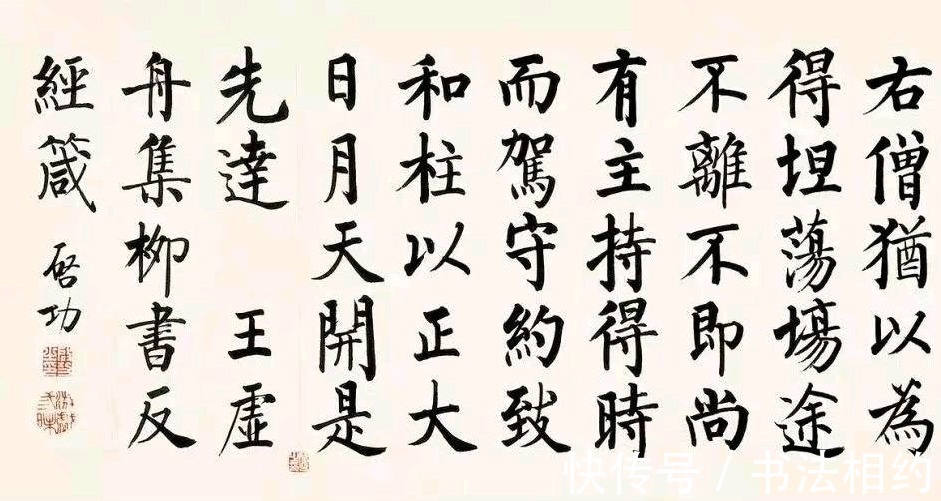 右僧猶以為
得坦蕩場途
不離不即尚
有主持得時
而駕守約致
和柱以正大
日月天開是
先達 王虛
舟集柳書反
經箴 啓功
快传号 / 书法相约